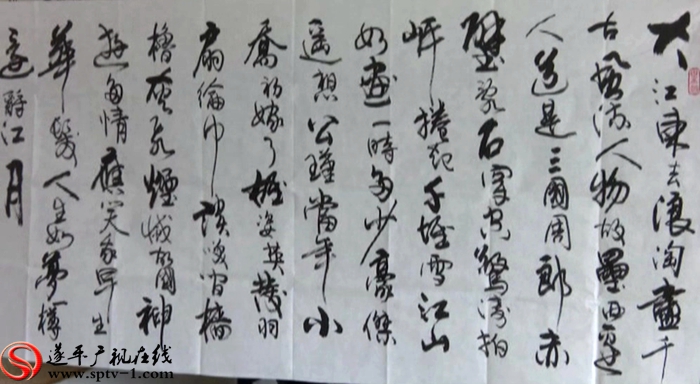 大江東去浪淘盡千
古風流人物故壘西邊
人道是三國周郎赤
壁亂石穿空驚濤拍
岸捲起千堆雪江山
如畫一時多少豪傑
遙想公瑾當年小
喬初嫁了雄姿英發羽
扇綸巾談笑間檣
櫓灰飛煙滅故國神
遊多情應笑我早生
華髮人生如夢一樽
還酹江月
遂平广视在线
www.sptv-1.com